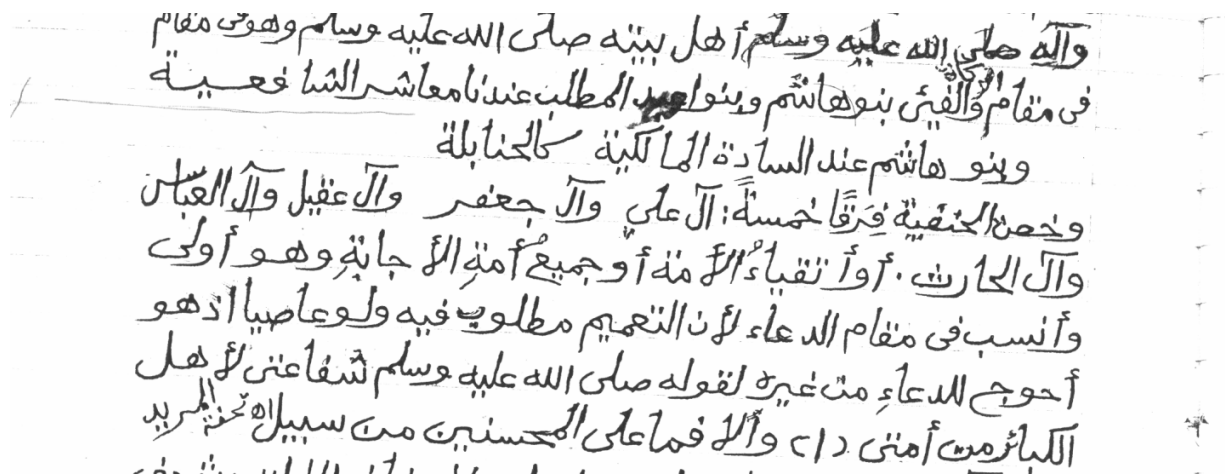 وآله صلى الله عليه وسلم أهل بيته صلى الله عليه وسلم وهو فى مقام
فى مقام الزكاة والفيئ بنوهاشم وبنوا المطلب عندنا معاشر الشافعية
وبنو هاشم عند السادة المالكية كالحنابلة
وخص الحنفية فِرَقًا خمسةً: آل علي وآل جعفر وآل عقيل وآل العباس
وآل الحارث . أو أتقياءُ الأمة أو جميعُ أمةِ الأجابةِ وهو أولى
وأنسب فى مقام الدعاء لأن التعميم مطلوب فيه ولو عاصيا اذ هو
أحوج للدعاءِ من غيره لقوله صلى الله عليه وسلم شفاعتى لأهل
الكبائر من أمتى (١) وألا فما على المحسنين من سبيل اه تحفة المريد